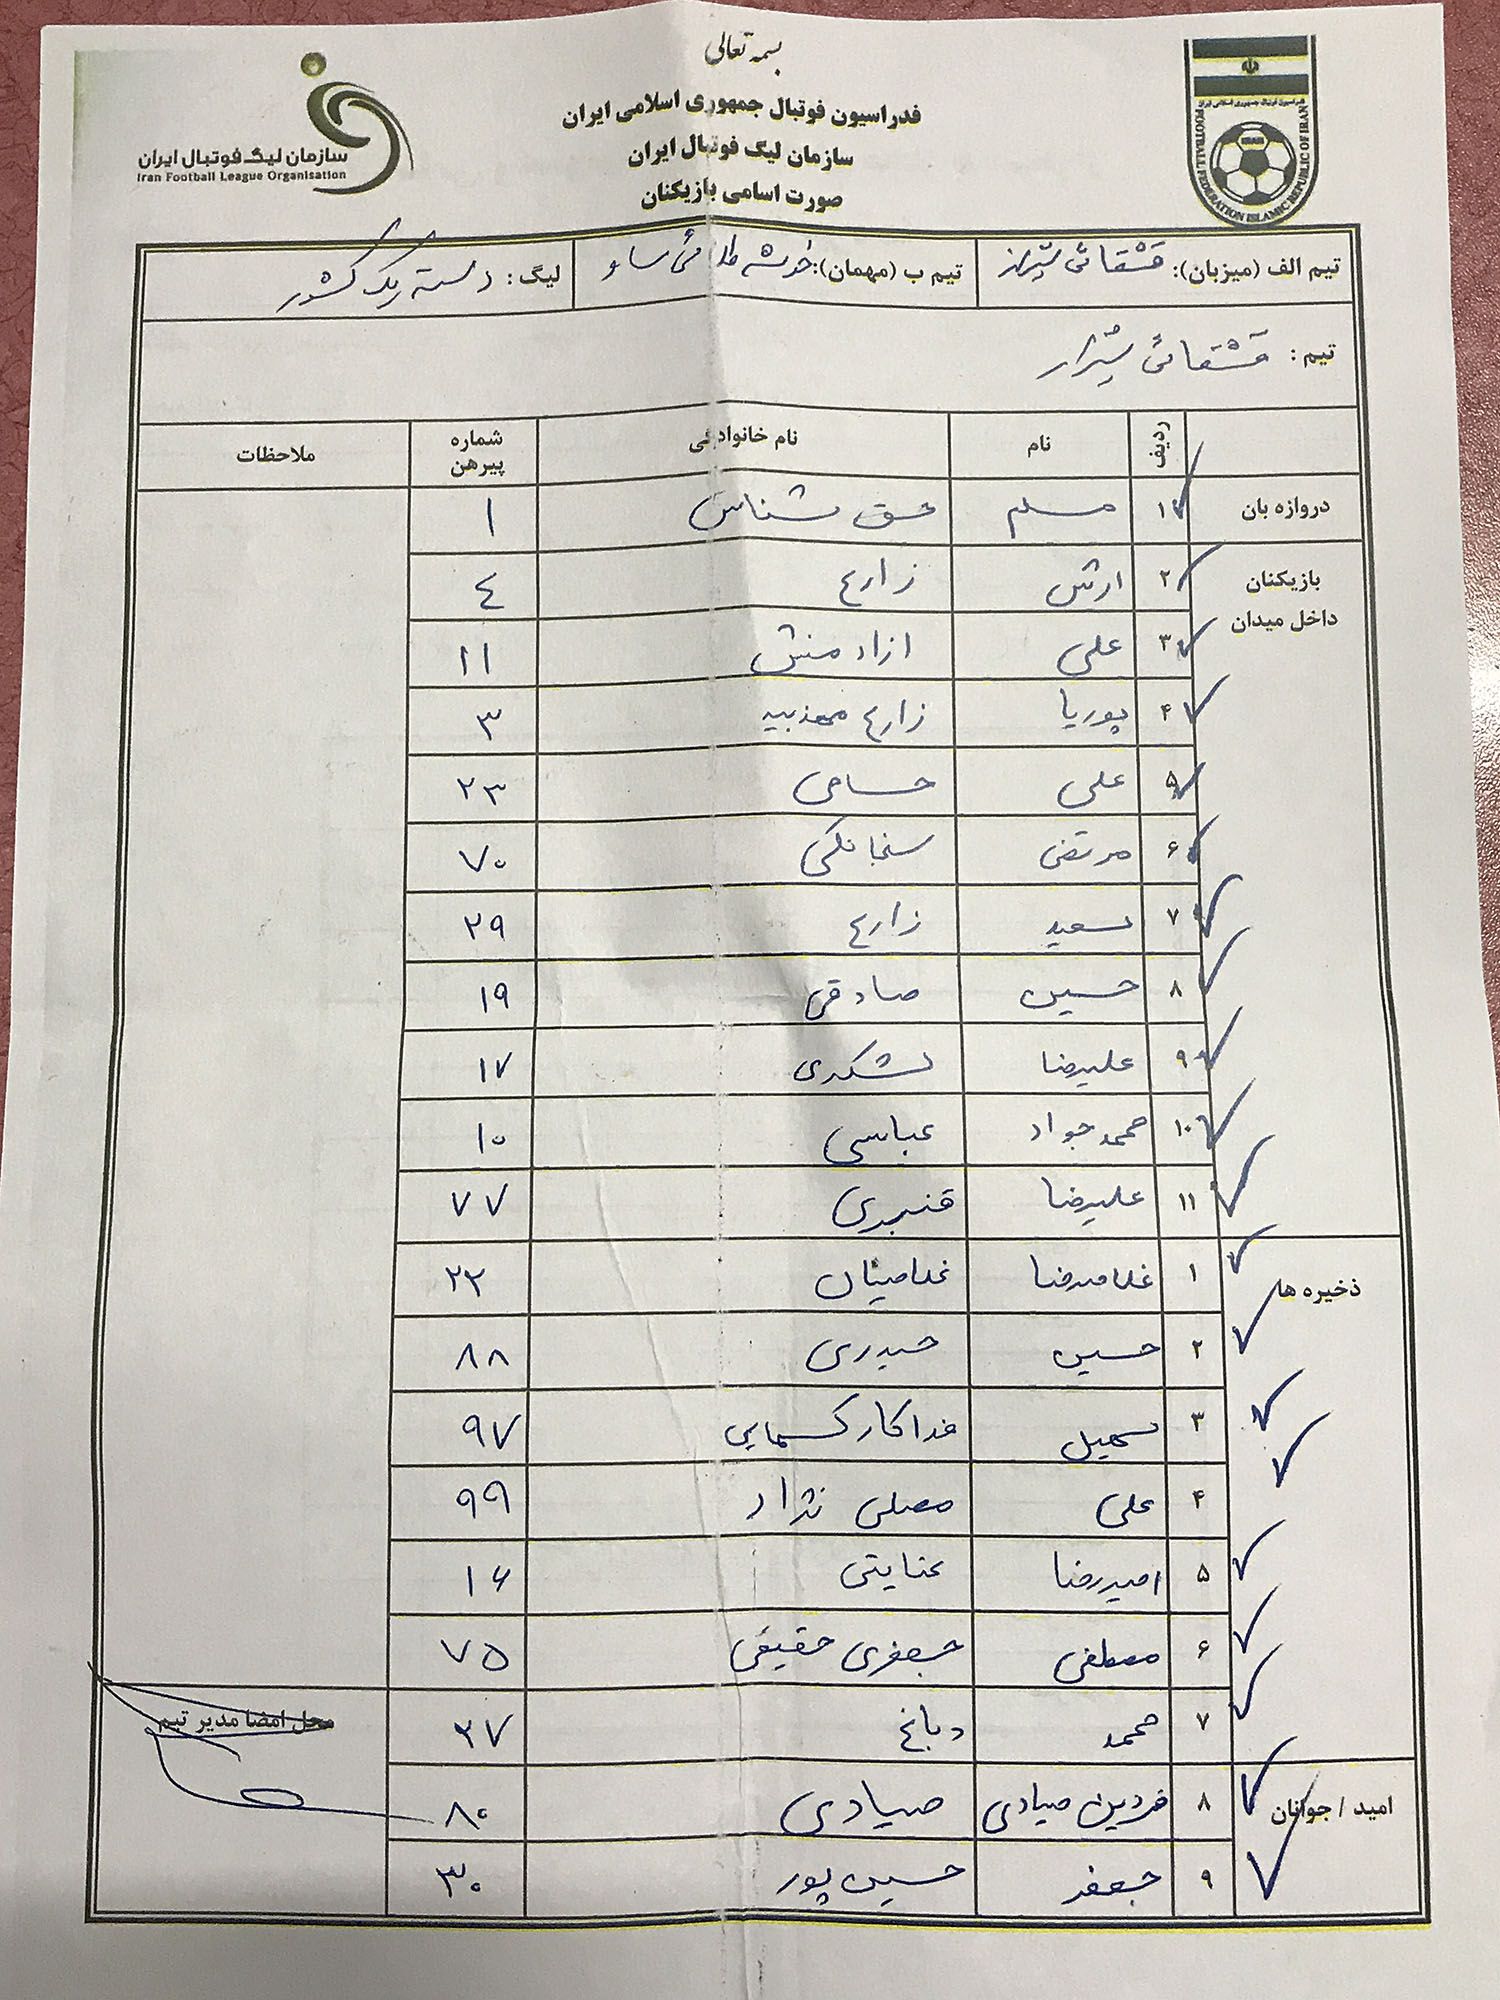 بسمه تعالی
فدراسیون فوتبال جمهوری اسلامی ایران
سازمان لیگ فوتبال ایران
صورت اسامی بازیکنان
سازمان لیگ فوتبال ایران
Iran Football League Organisation
فدراسیون فوتبال جمهوری اسلامی ایران
IRAN
FOOTBALL FEDERATION ISLAMIC REPUBLIC OF IRAN
تیم الف (میزبان): قشقائی شیراز تیم ب (مهمان): خوشه طلائی ساوه لیگ: دسته یک کشور
تیم: قشقائی شیراز
ردیف نام نام خانوادگی شماره پیرهن ملاحظات
دروازه بان ۱ مسلم حق شناس ۱
بازیکنان داخل میدان ۲ ارش زارع ٤
۳ علی ازاد منش ۱۱
۴ پوریا زارع مهذبیه ۳
۵ علی حسامی ۲۳
۶ مرتضی ۷۰
۷ سعید زارع ۲۹
۸ حسین صادقی ۱۹
۹ علیرضا لشکری ۱۷
۱۰ محمد جواد عباسی ۱۰
۱۱ علیرضا قنبری ۷۷
ذخیره ها ۱ غلامرضا غلامیان ۲۲
۲ حسین حیدری ۸۸
۳ سهیل فداکار کسمایی ۹۷
۴ علی مصلی نژاد ۹۹
۵ امیررضا عنایتی ۱۶
۶ مصطفی جعفری حقیقی ۷۵
۷ محمد دباغ ۳۷
محل امضا مدیر تیم
امید / جوانان ۸ فردین صیادی صیادی ۸۰
۹ جعفر حسین پور ۳۰